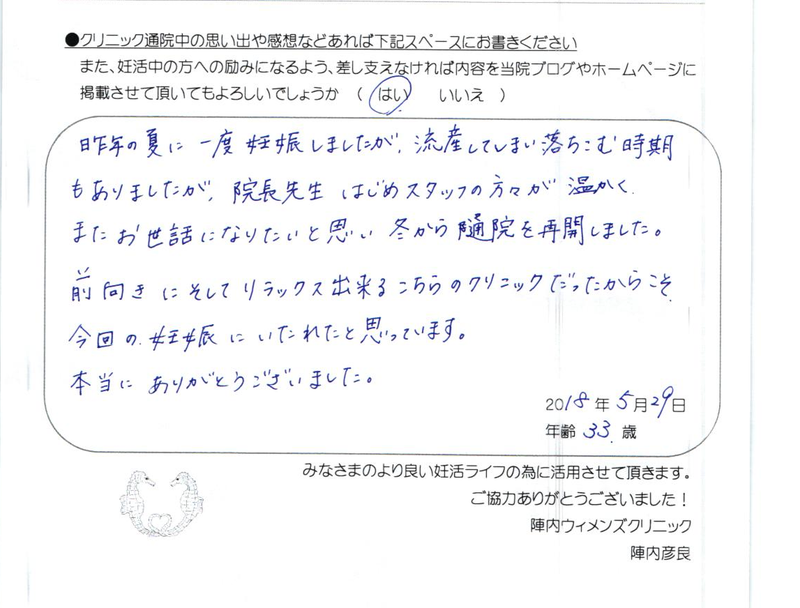 ●クリニック通院中の思い出や感想などあれば下記スペースにお書きください
また、妊活中の方への励みになるよう、差し支えなければ内容を当院ブログやホームページに
掲載させて頂いてもよろしいでしょうか （ はい　いいえ ）
昨年の夏に一度妊娠しましたが、流産してしまい落ちこむ時期
もありましたが、院長先生はじめスタッフの方々が温かく、
またお世話になりたいと思い冬から通院を再開しました。
前向きにそしてリラックス出来るこちらのクリニックだったからこそ
今回の妊娠にいたれたと思っています。
本当にありがとうございました。
2018年5月29日
年齢 33 歳
みなさまのより良い妊活ライフの為に活用させて頂きます。
ご協力ありがとうございました！
陣内ウィメンズクリニック
陣内彦良